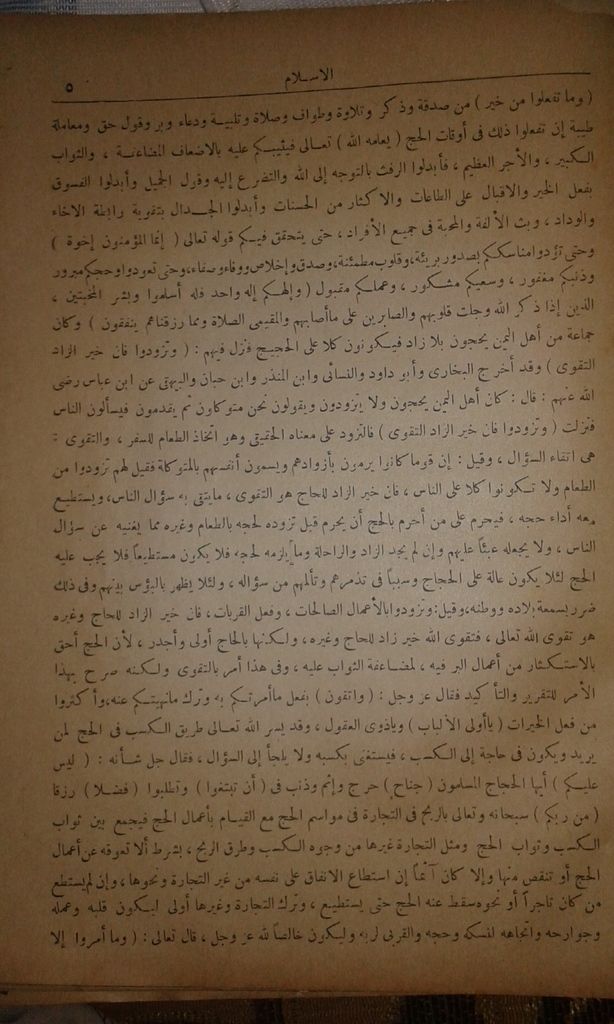 الاسلام
٥
( وما تفعلوا من خير ) من صدقة وذكر وتلاوة وطواف وصلاة وتلبية ودعاء وبر وقول حق ومعاملة
طيبة إن تفعلوا ذلك فى أوقات الحج ( يعلمه الله ) تعالى فيثيبكم عليه بالاضعاف المضاعفة ، والثواب
الكبير ، والأجر العظيم ، فأبدلوا الرفث بالتوجه إلى الله والتضرع إليه وقول الجميل وأبدلوا الفسوق
بفعل الخير والاقبال على الطاعات والاكثار من الحسنات وأبدلوا الجدال بتقوية رابطة الاخاء
والوداد ، وبث الألفة والمحبة فى جميع الأفراد ، حتى يتحقق فيكم قوله تعالى ( إنما المؤمنون إخوة )
وحتى تؤدوا مناسككم بصدور بريئة، وقلوب مطمئنة، وصدق وإخلاص ووفاء وصفاء، وحتى تعودوا وحجكم مبرور
وذنبكم مغفور ، وسعيكم مشكور ، وعملكم مقبول ( وإلهكم إله واحد فله أسلموا وبشر المخبتين ،
الذين إذا ذكر الله وجلت قلوبهم والصابرين على ماأصابهم والمقيمى الصلاة ومما رزقناهم ينفقون ) وكان
جماعة من أهل اليمن يحجون بلا زاد فيكونون كلا على الحجيج فنزل فيهم : ( وتزودوا فان خير الزاد
التقوى ) وقد أخرج البخارى وأبو داود والنسائى وابن المنذر وابن حبان والبيهقى عن ابن عباس رضى
الله عنهم : قال : كان أهل اليمن يحجون ولا يتزودون ويقولون نحن متوكلون ثم يقدمون فيسألون الناس
فنزلت ( وتزودوا فان خير الزاد التقوى ) فالتزود على معناه الحقيقى وهو اتخاذ الطعام للسفر ، والتقوى :
هى اتقاء السؤال ، وقيل : إن قوما كانوا يرمون بأزوادهم ويسمون أنفسهم بالمتوكلة فقيل لهم تزودوا من
الطعام ولا تكونوا كلا على الناس ، فان خير الزاد للحاج هو التقوى ، مايتقى به سؤال الناس، ويستطيع
معه أداء حجه ، فيحرم على من أحرم بالحج أن يحرم قبل تزوده لحجه بالطعام وغيره مما يغنيه عن سؤال
الناس ، ولا يجعله عبئاً عليهم وإن لم يجد الزاد والراحلة وما يلزمه لحجه فلا يكون مستطيعاً فلا يجب عليه
الحج لئلا يكون عالة على الحجاج وسبباً فى تذمرهم وتألمهم من سؤاله ، ولئلا يظهر بالبؤس بينهم وفى ذلك
ضرر بسمعة بلاده ووطنه، وقيل: وتزودوا بالأعمال الصالحات ، وفعل القربات ، فان خير الزاد للحاج وغيره
هو تقوى الله تعالى ، فتقوى الله خير زاد للحاج وغيره ، ولكنها بالحاج أولى وأجدر ، لأن الحج أحق
بالاستكثار من أعمال البر فيه ، لمضاعفة الثواب عليه ، وفى هذا أمر بالتقوى ولكنه صرح بهذا
الأمر للتقرير والتأكيد فقال عز وجل : ( واتقون ) بفعل ماأمرتكم به وترك مانهيتكم عنه، وأكثروا
من فعل الخيرات ( ياأولى الألباب ) وياذوى العقول ، وقد يسر الله تعالى طريق الكسب فى الحج لمن
يريد ويكون فى حاجة إلى الكسب ، فيستغنى بكسبه ولا يلجأ إلى السؤال ، فقال جل شأنه : ( ليس
عليكم ) أيها الحجاج المسلمون ( جناح ) حرج وإثم وذنب فى ( أن تبتغوا ) وتطلبوا ( فضلا ) رزقا
( من ربكم ) سبحانه وتعالى بالربح فى التجارة فى مواسم الحج مع القيام بأعمال الحج فيجمع بين ثواب
الكسب وثواب الحج ومثل التجارة غيرها من وجوه الكسب وطرق الربح ، بشرط ألا تعوقه عن أعمال
الحج أو تنقص منها وإلا كان آثماً إن استطاع الانفاق على نفسه من غير التجارة ونحوها ، وإن لم يستطع
من كان تاجراً أو نحوه سقط عنه الحج حتى يستطيع ، وترك التجارة وغيرها أولى ليكون قلبه وعمله
وجوارحه واتجاهه لنسكه وحجه والقربى لربه وليكون خالصاً لله عز وجل ، قال تعالى : ( وما أمروا إلا